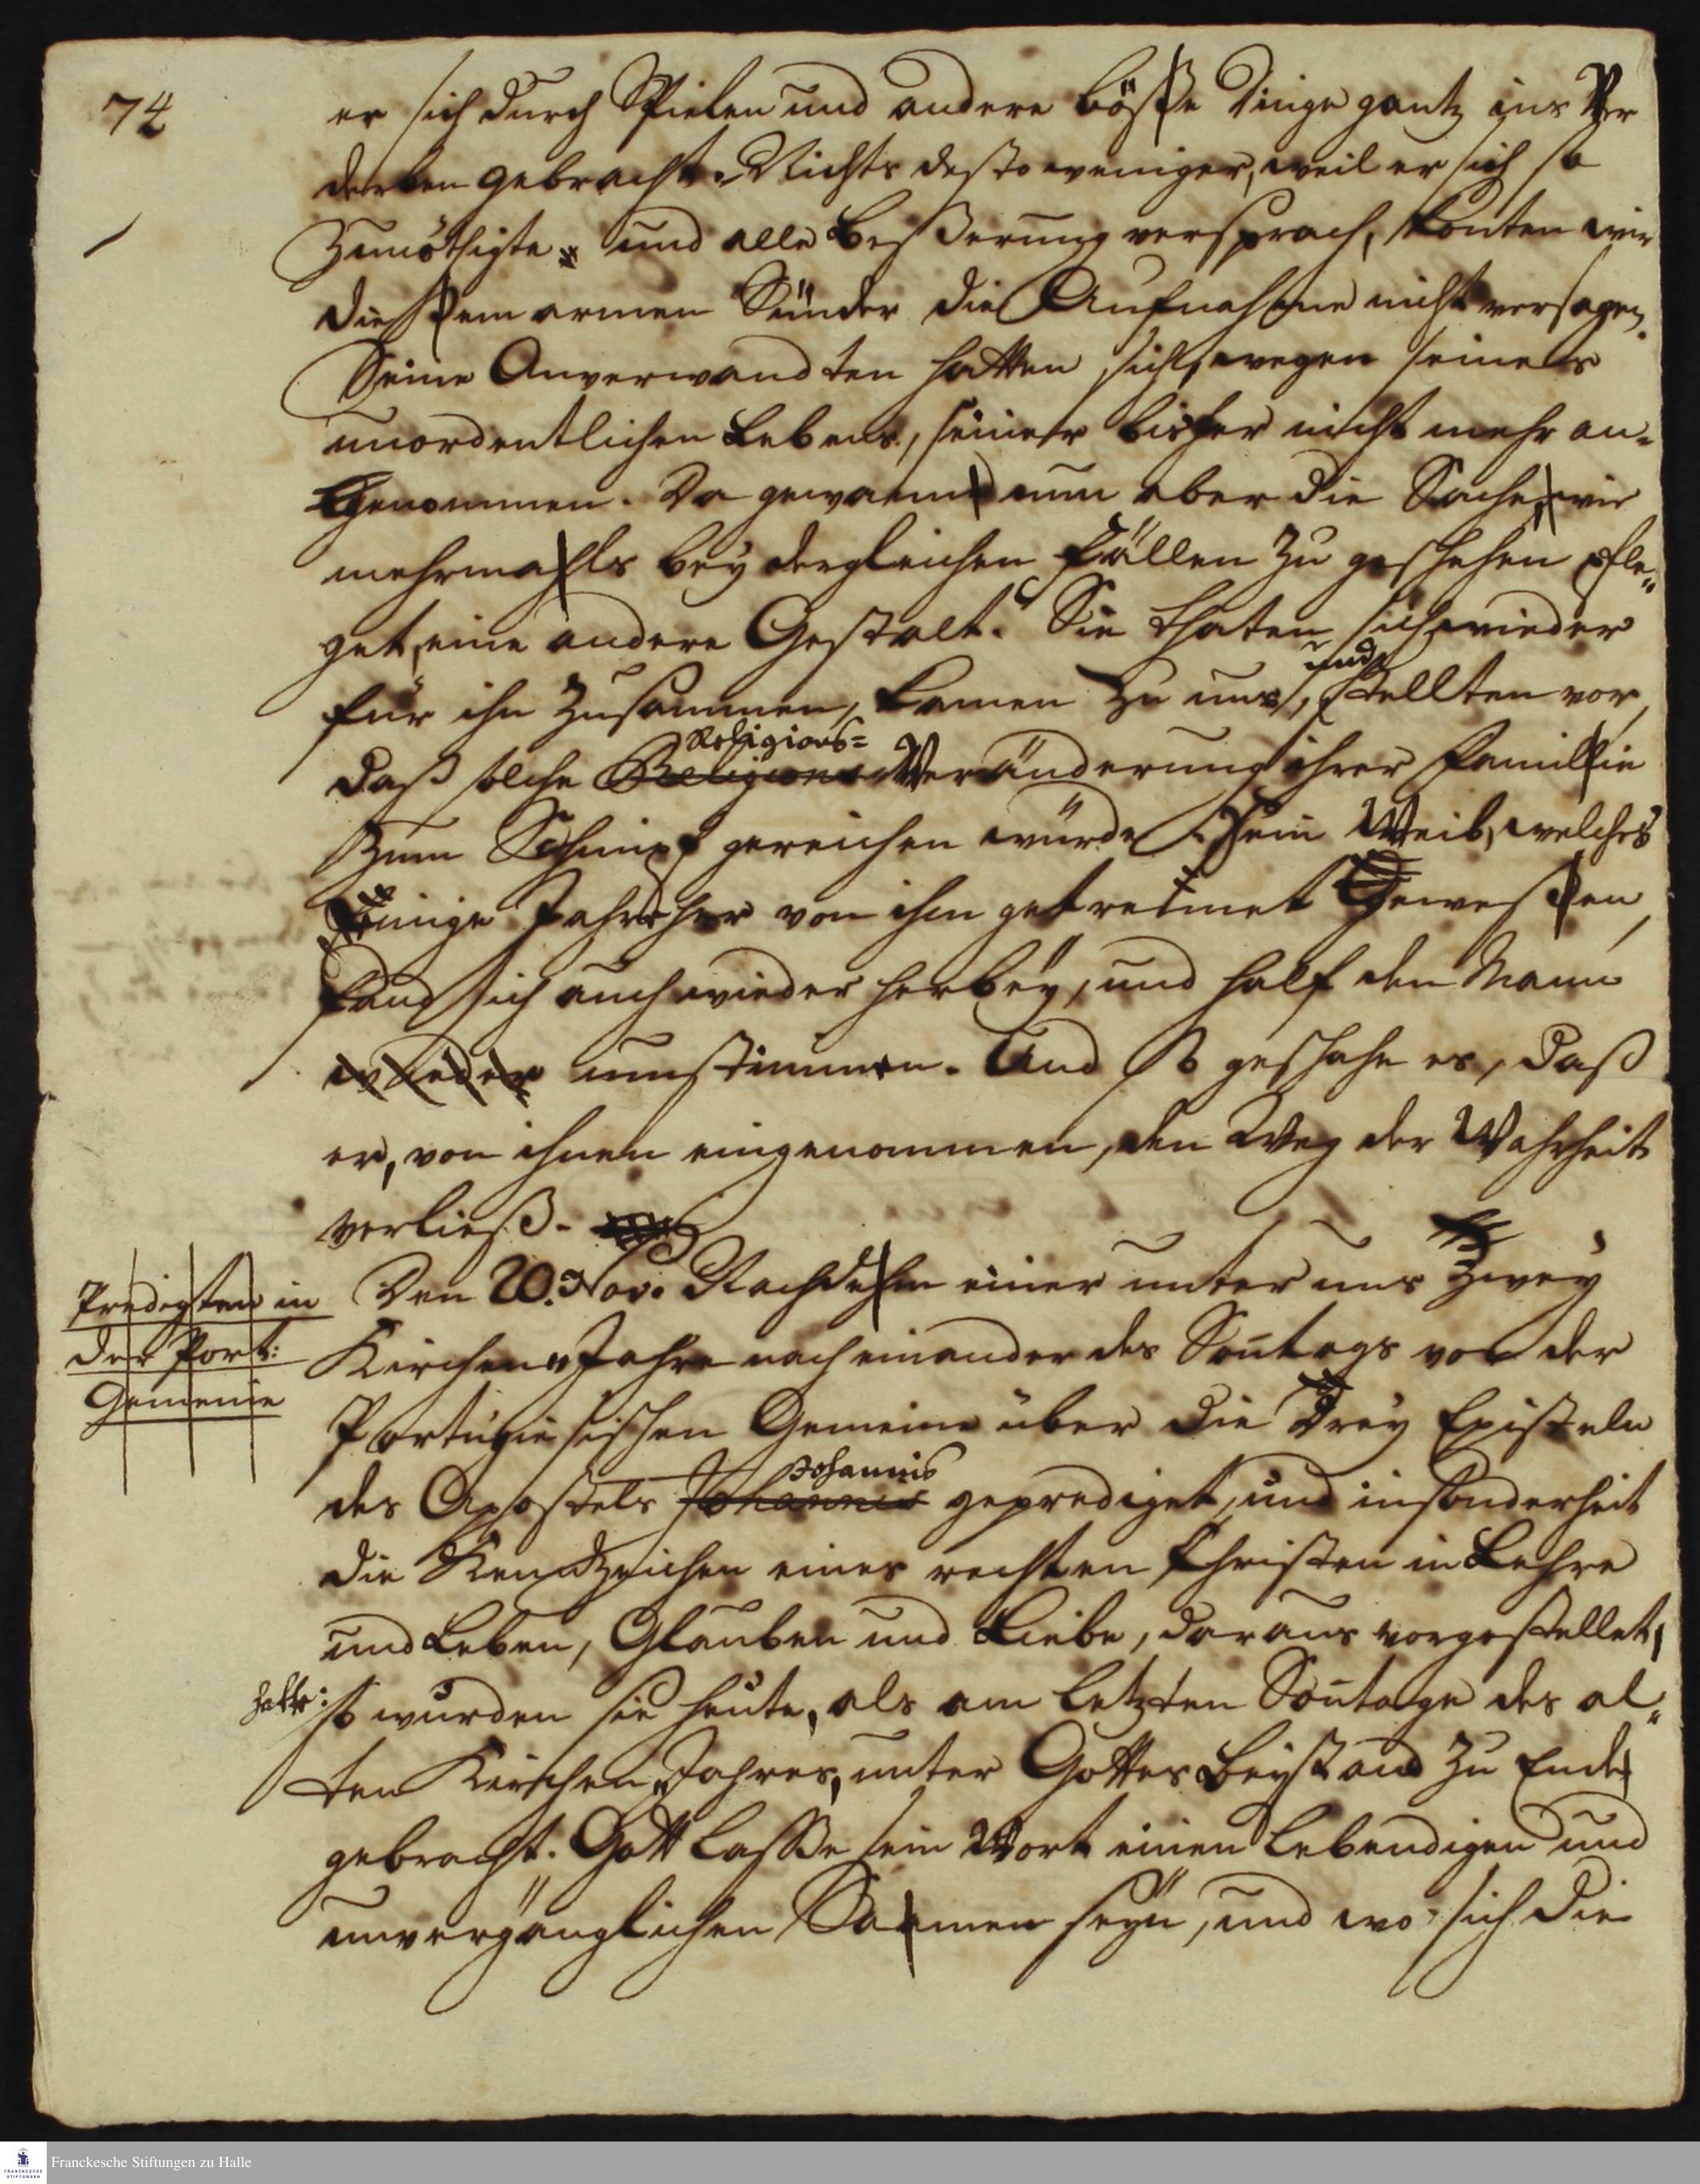 74
er sich durch Spielen und andere böse Dinge gantz ins Ver
derben gebracht. Nichts desto weniger, weil er sich so
zunöthigte und alle Beßerung versprach, konten wir
diesem armen Sünder die Aufnahme nicht versagen.
Seine Anverwandten hatten sich, wegen seines
unordentlichen Lebens, seiner bisher nicht mehr an-
genommen. Da gewann nun aber die Sache, wie
mehrmals bey dergleichen Fällen zu geschehen pfle-
get, eine andere Gestalt. Sie thaten sich wieder
für ihn zusammen, kamen zu uns, und stellten vor,
daß solche Religions= Veränderung ihrer Familie
zum Schimpf gereichen würde. Sein Weib, welches
einige Jahre her von ihm getrennet gewesen,
fand sich auch wieder herbey, und half den Mann
wieder umstimmen. Und so geschahe es, daß
er, von ihnen eingenommen, den Weg der Wahrheit
verließ.
Predigten in
der Port:
Gemeine
Den 20. Nov. Nachdem einer unter uns zwey
Kirchen-Jahre nach einander des Sontags vor der
Portugiesischen Gemeine über die drey Episteln
des Apostels Johannis geprediget, und insonderheit
die Kennzeichen eines rechten Christen in Lehre
und Leben, Glauben und Liebe, daraus vorgestellet,
hatte: so wurden sie heute, als am letzten Sontage des al-
ten Kirchen-Jahres, unter Gottes Beystand zu Ende
gebracht. Gott lasse sein Wort einen lebendigen und
unvergänglichen Samen seyn, und wo sich die
Franckesche Stiftungen zu Halle
FRANCKESCHE
STIFTUNGEN